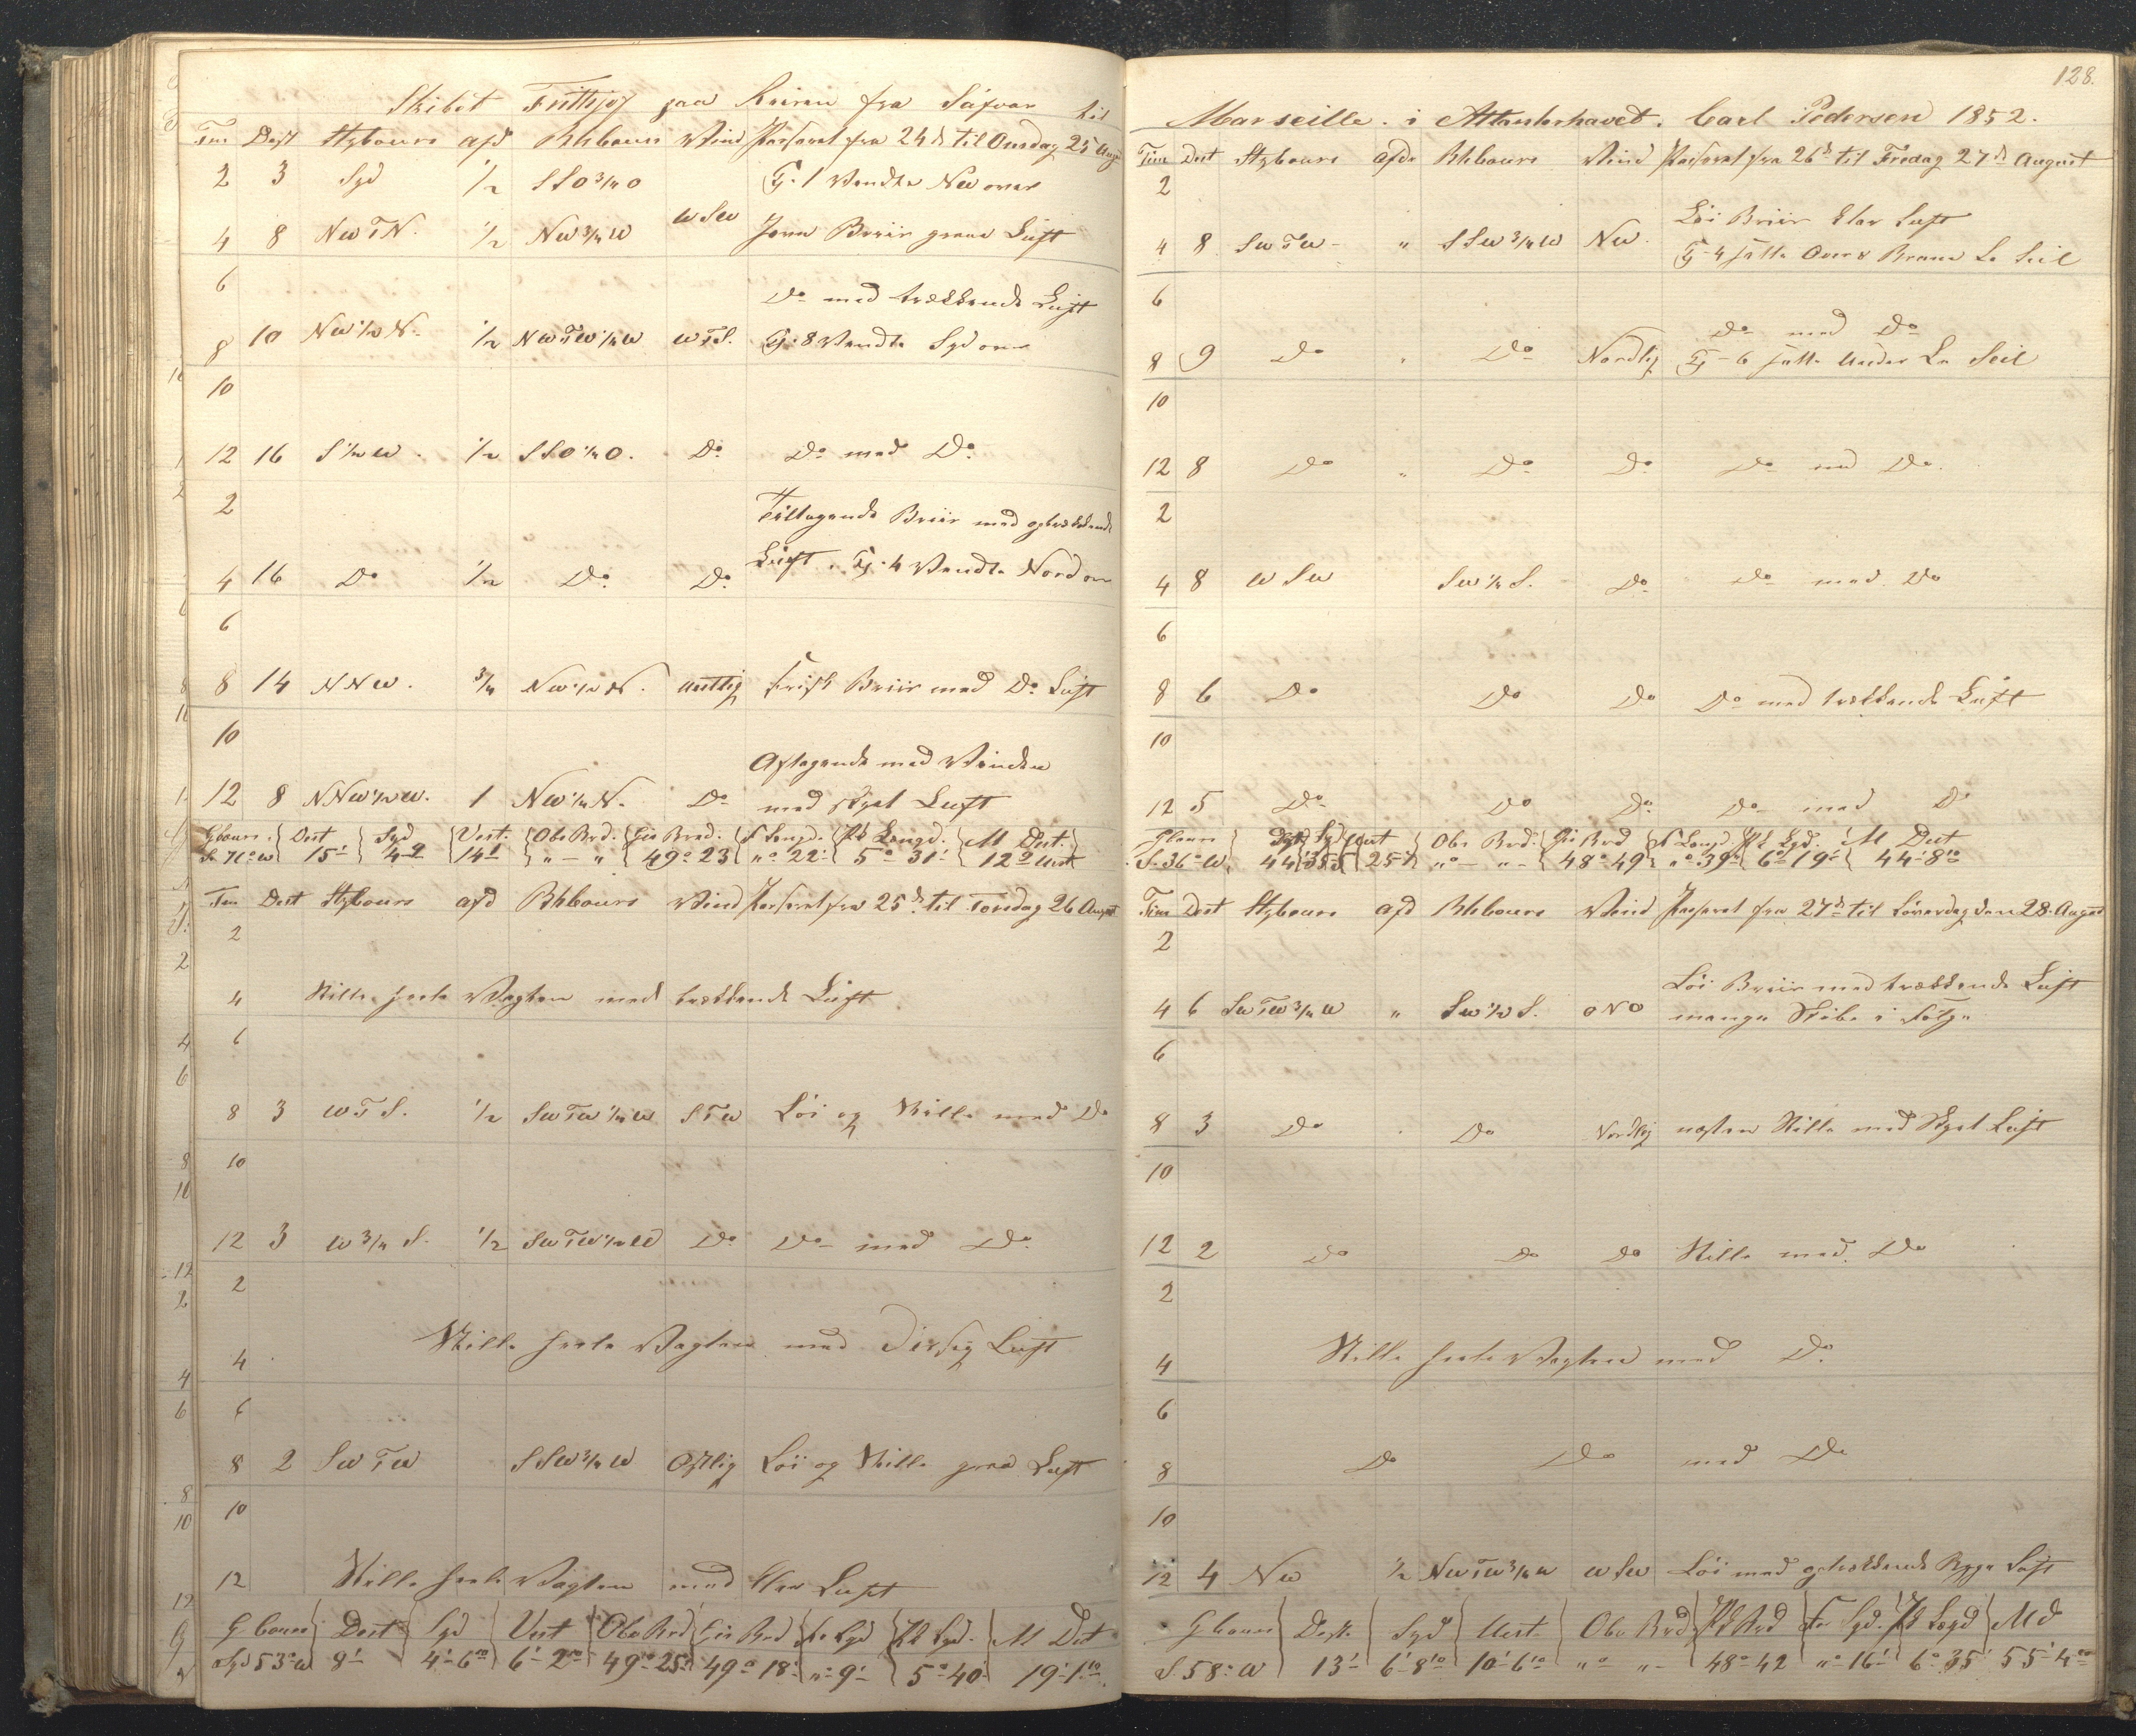 Skibet Frithjof paa Reisen fra Säfvar til
Tim Dist Stybours afd Bhbours Vind Passeret fra 24d til Onsdag 25 Aug
2 3 Syd 1/2 SSO 3/4 O Kj. 1 Vendte Nw over
4 8 NwTN. 1/2 Nw 3/4 W WSw Jevn Briis graae Luft
6
Do med trækkende Luft
8 10 Nw 1/2 N. 1/2 NwTw 1/4 W WTS. Kj. 8 Vendte Syd over
10
12 16 S 1/2 W. 1/2 SSO 1/4 O. Do Do med Do
2 Tiltagende Briis med optrækkende
4 16 Do 1/2 Do Do Luft. Kj. 4 Vendte Nord over
6
8 14 NNW. 3/4 Nw 1/2 N. Vestlig Frisk Briis med Do Luft
10 Aftagende med Vinden
12 8 NNW 1/2 W. 1 Nw 1/4 N. Do med skyet Luft
Gbours Dist Syd Vest. Obs Brd. Gis Bred. F Længd. Pk Længd. M Dist.
S 71° W 15' 4-9 14 " - " 49° 23 "° 22' 5° 31' 12° Vest
Tim Dist Stybours afd Bhbours Vind Passeret fra 25d til Torsdag 26 August
2
4 Stille heele Vagten med trækkende Luft
6
8 3 WTS. 1/2 SwTw 1/4 W STW Löi og Stille med Do
10
12 3 W 3/4 S. 1/2 SwTW 1/2 W Do Do med Do
2
4 Stille heele Vagten med Disig Luft
6
8 2 SwTw SSW 3/4 W Ostlig Löi og Stille graa Luft
10
12 Stille heele Vagten med klar Luft
Gbours Dist Syd Vest Obs Brd Gis Brd Fo Lgd Pk Lgd. M Dist
Syd 53° W 8' 4'-6 6'-2 49°-25' 49° 18' "° 9' 5° 40' 19'-1
128.
Marseille. i Attlanterhavet. Carl Pedersen 1852.
Time Dist Stybours afdr Bhbours Vind Passeret fra 26d til Fredag 27d August
2
Löi Briis klar Luft
4 8 SwTw " SSW 3/4 W Nw. Kj 4 satte Over & Brann Læ Seil
6
Do med Do
8 9 Do " Do Nordlig Kj 6 satte Under Læ Seil
10
12 8 Do " Do Do Do med Do.
2
4 8 WSw Sw 1/4 S. Do Do med Do
6
8 6 Do Do Do Do med trækkende Luft
10
12 5 Do Do Do Do med Do
Gbours Dist Syd Vest Obs Brd. Gis Brd F Længd Pk Lgd. M Dist
S 36° W 44 35-5 25-9 "° - " 48° 49 "° 39 6° 19' 44'-8
Time Dist Stybours afd Bhbours Vind Passeret fra 27d til Löverdag den 28. August
2
Löi Briis med trækkende Luft
4 6 SwTw 3/4 W " Sw 1/2 S. ONO mange Skibe i Følge
6
8 3 Do Do Nordlig næsten Stille med Skyet Luft
10
12 2 Do Do Do Stille med Do
2
4 Stille heele Vagten med Do
6
8 Do Do med Do
10
12 4 Nw 1/2 NwTw 3/4 W WSw Löi med optrækkende Bygge Luft
Gbours Dist Syd Vest Obs Brd Pk Brd For Lgd. Pk Længd Md
S 58° W 13' 6'-8 10'-6 "° " 48° 42 "° 16' 6° 35' 55'-4